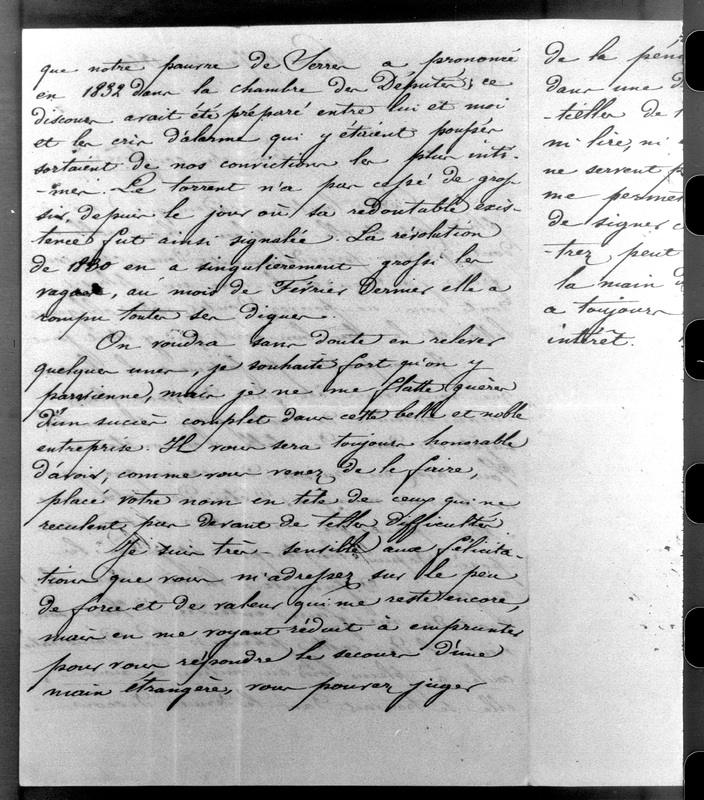 que notre pauvre de Serre a prononcé
en 1832 dans la chambre des Députés; ce
discours avait été préparé entre lui et moi
et les cris d'alarme qui y étaient poussés
sortaient de nos convictions les plus inti-
-mes. Le torrent n'a pas cessé de gros
sir, depuis le jour où sa redoutable exis-
tence fut ainsi signalée. La révolution
de 1830 en a singulièrement grossi les
vagues, au mois de Février dernier elle a
rompu toutes ses digues.
On voudra sans doute en relever
quelques unes, je souhaite fort qu'on y
parvienne, mais je ne me flatte guères
d'un succès complet dans cette belle et noble
entreprise. Il vous sera toujours honorable
d'avoir, comme vous venez de le faire,
placé votre nom en tête de ceux qui ne
reculent pas devant de telles difficultés
Je suis très-sensible aux félicita-
tions que vous m'adressez sur le peu
de force et de valeur qui me reste encore,
mais en me voyant réduit à emprunter
pour vous répondre le secours d'une
main étrangère, vous pouvez juger
de la pén
dans une d
-teller de
m lire, ni
ne servent p
me permet
de signer c
trez peut
la main d
a toujours
intérêt.